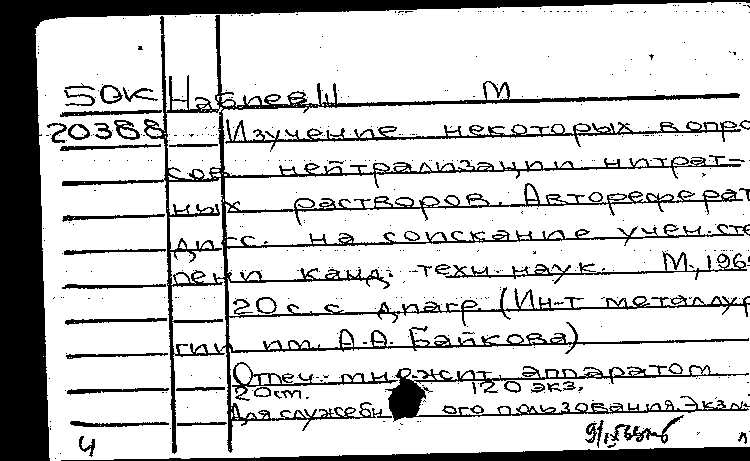 50К Набиев, Ш М
20388 Изучение некоторых вопро
сов нейтрализации нитрат=
ных растворов. Автореферат
дисс. на соискание учен. сте
пени канд. техн. наук. М., 196
20 с. с диагр. (Ин-т металлур
гии им. А.А. Байкова)
Отпеч. множит. аппаратом
20 ст. 120 экз.
Для служебн ого пользования. Экз.
4